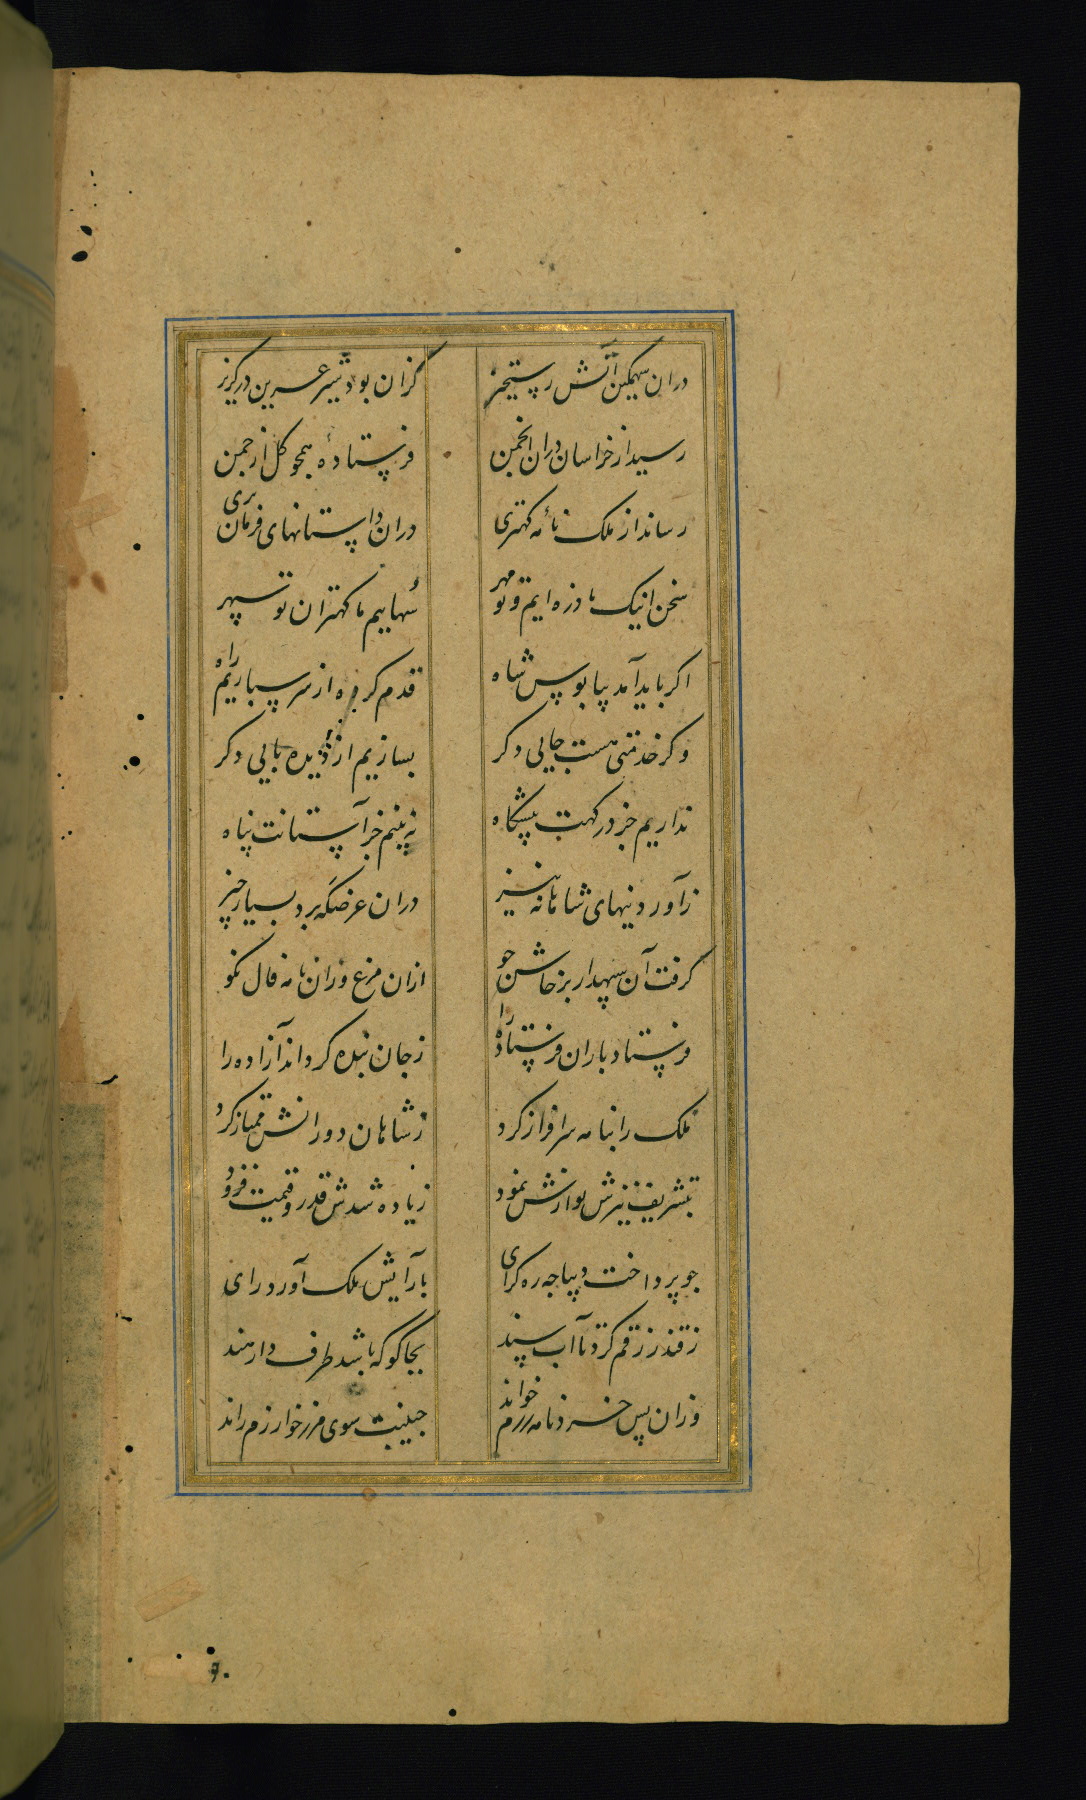 دران سهمکین آتش رستخیز کزان بود شیر عرین در کریز
رسید از خراسان دران انجمن فرستادهٔ همچو کل از چمن
رساند از ملک نامهٔ کهتری دران داستانهای فرمان بری
سخن اینک ما ذره ایم و تو مهر سُهاییم ما کهتران تو سپهر
اکر باید آمد پپابوس شاه قدم کرده از سر سپاریم راه
وکر خدمتی هست جایی دکر بسازیم از دیده پایی دکر
نداریم جز درکهت پیشکاه نه بینم جز آستانت پناه
ز آوردنیهای شاهانه نیز دران عرضکه برد بسیار چیز
کرفت آن سپهدار پرخاش جو ازان مرغ وزان نامه فال نکو
فرستاد باران فرستاده را ز جان بنده کرداند آزاده را
ملک را بنامه سرافراز کرد ز شاهان دورانش ممتاز کرد
بتشریف نیزش نوازش نمود زیاده شدش قدر و قیمت فزود
چو پرداخت دیباجه ره کرای بآرایش ملک آورد رای
ز قندز رقم کرد تا آب سند بجا کو که باشد طرف دار هند
وزان پس خسرو نامه رزم خواند جنیبت سوی مرز خوارزم راند